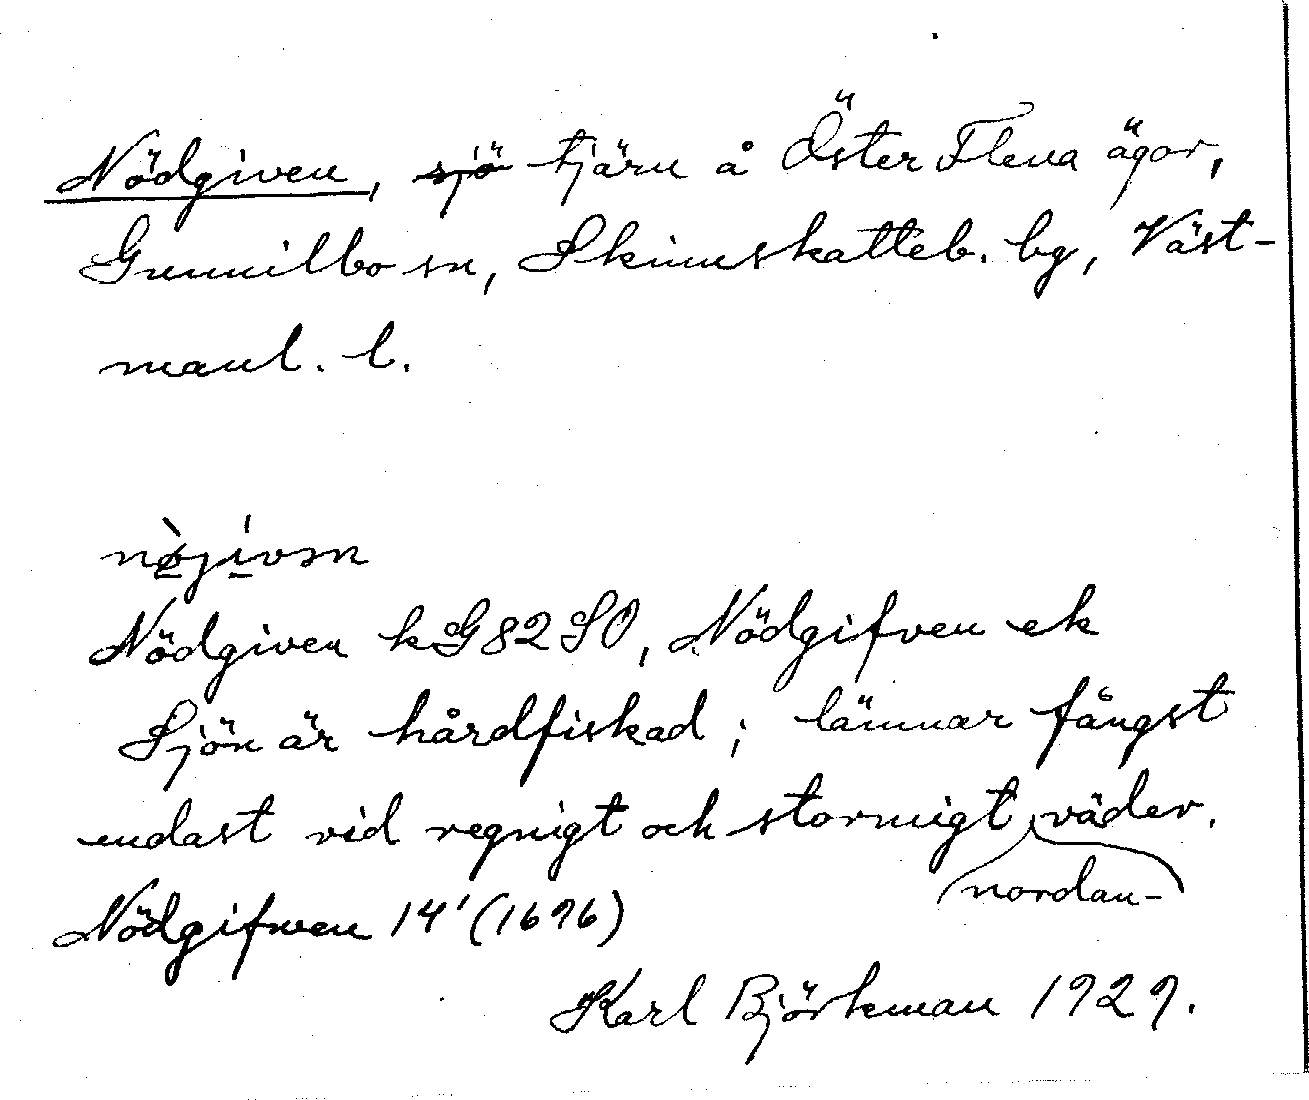 Nödgiven, sjö tjärn å Öster Flena ägor,
Gunnilbo sn, Skinnskatteb. bg, Väst-
manl. l.
nø̀jívən
Nödgiven kG82SO, Nödgifven ek
Sjön är hårdfiskad; lämnar fångst
endast vid regnigt och stormigt väder.
nordan-
Nödgifwen 14' (1696)
Karl Björkman 1929.